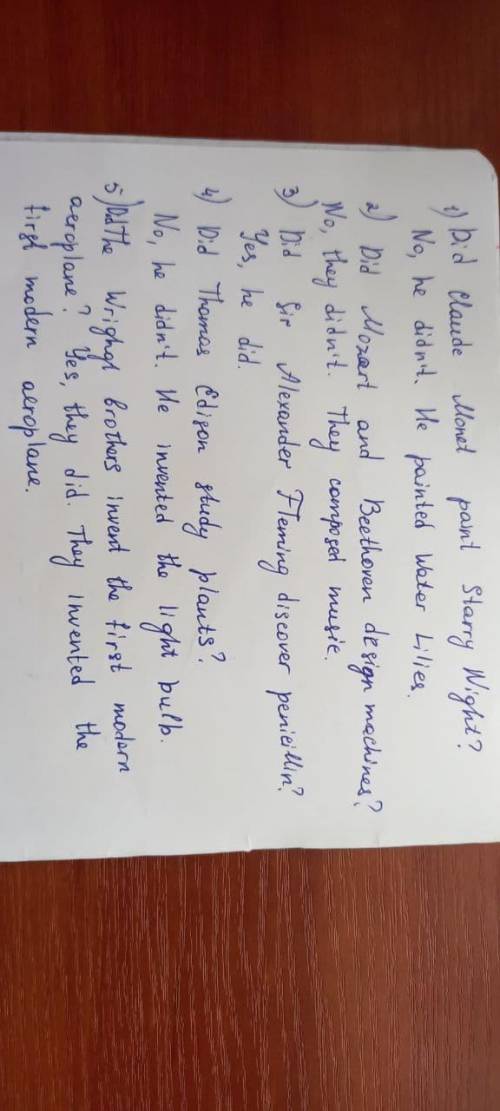 1) Did Claude Monet pant Starry Night?
No, he didn't. He painted Water Lilies.
2) Did Mozart and Beethoven design machines?
No, they didn't. They composed music.
3) Did Sir Alexander Fleming discover penicillin?
Yes, he did.
4) Did Thomas Edison study plants?
No, he didn't. He invented the light bulb.
5) Did the Wright brothers invent the first modern
aeroplane? Yes, they did. They invented the
first modern aeroplane.